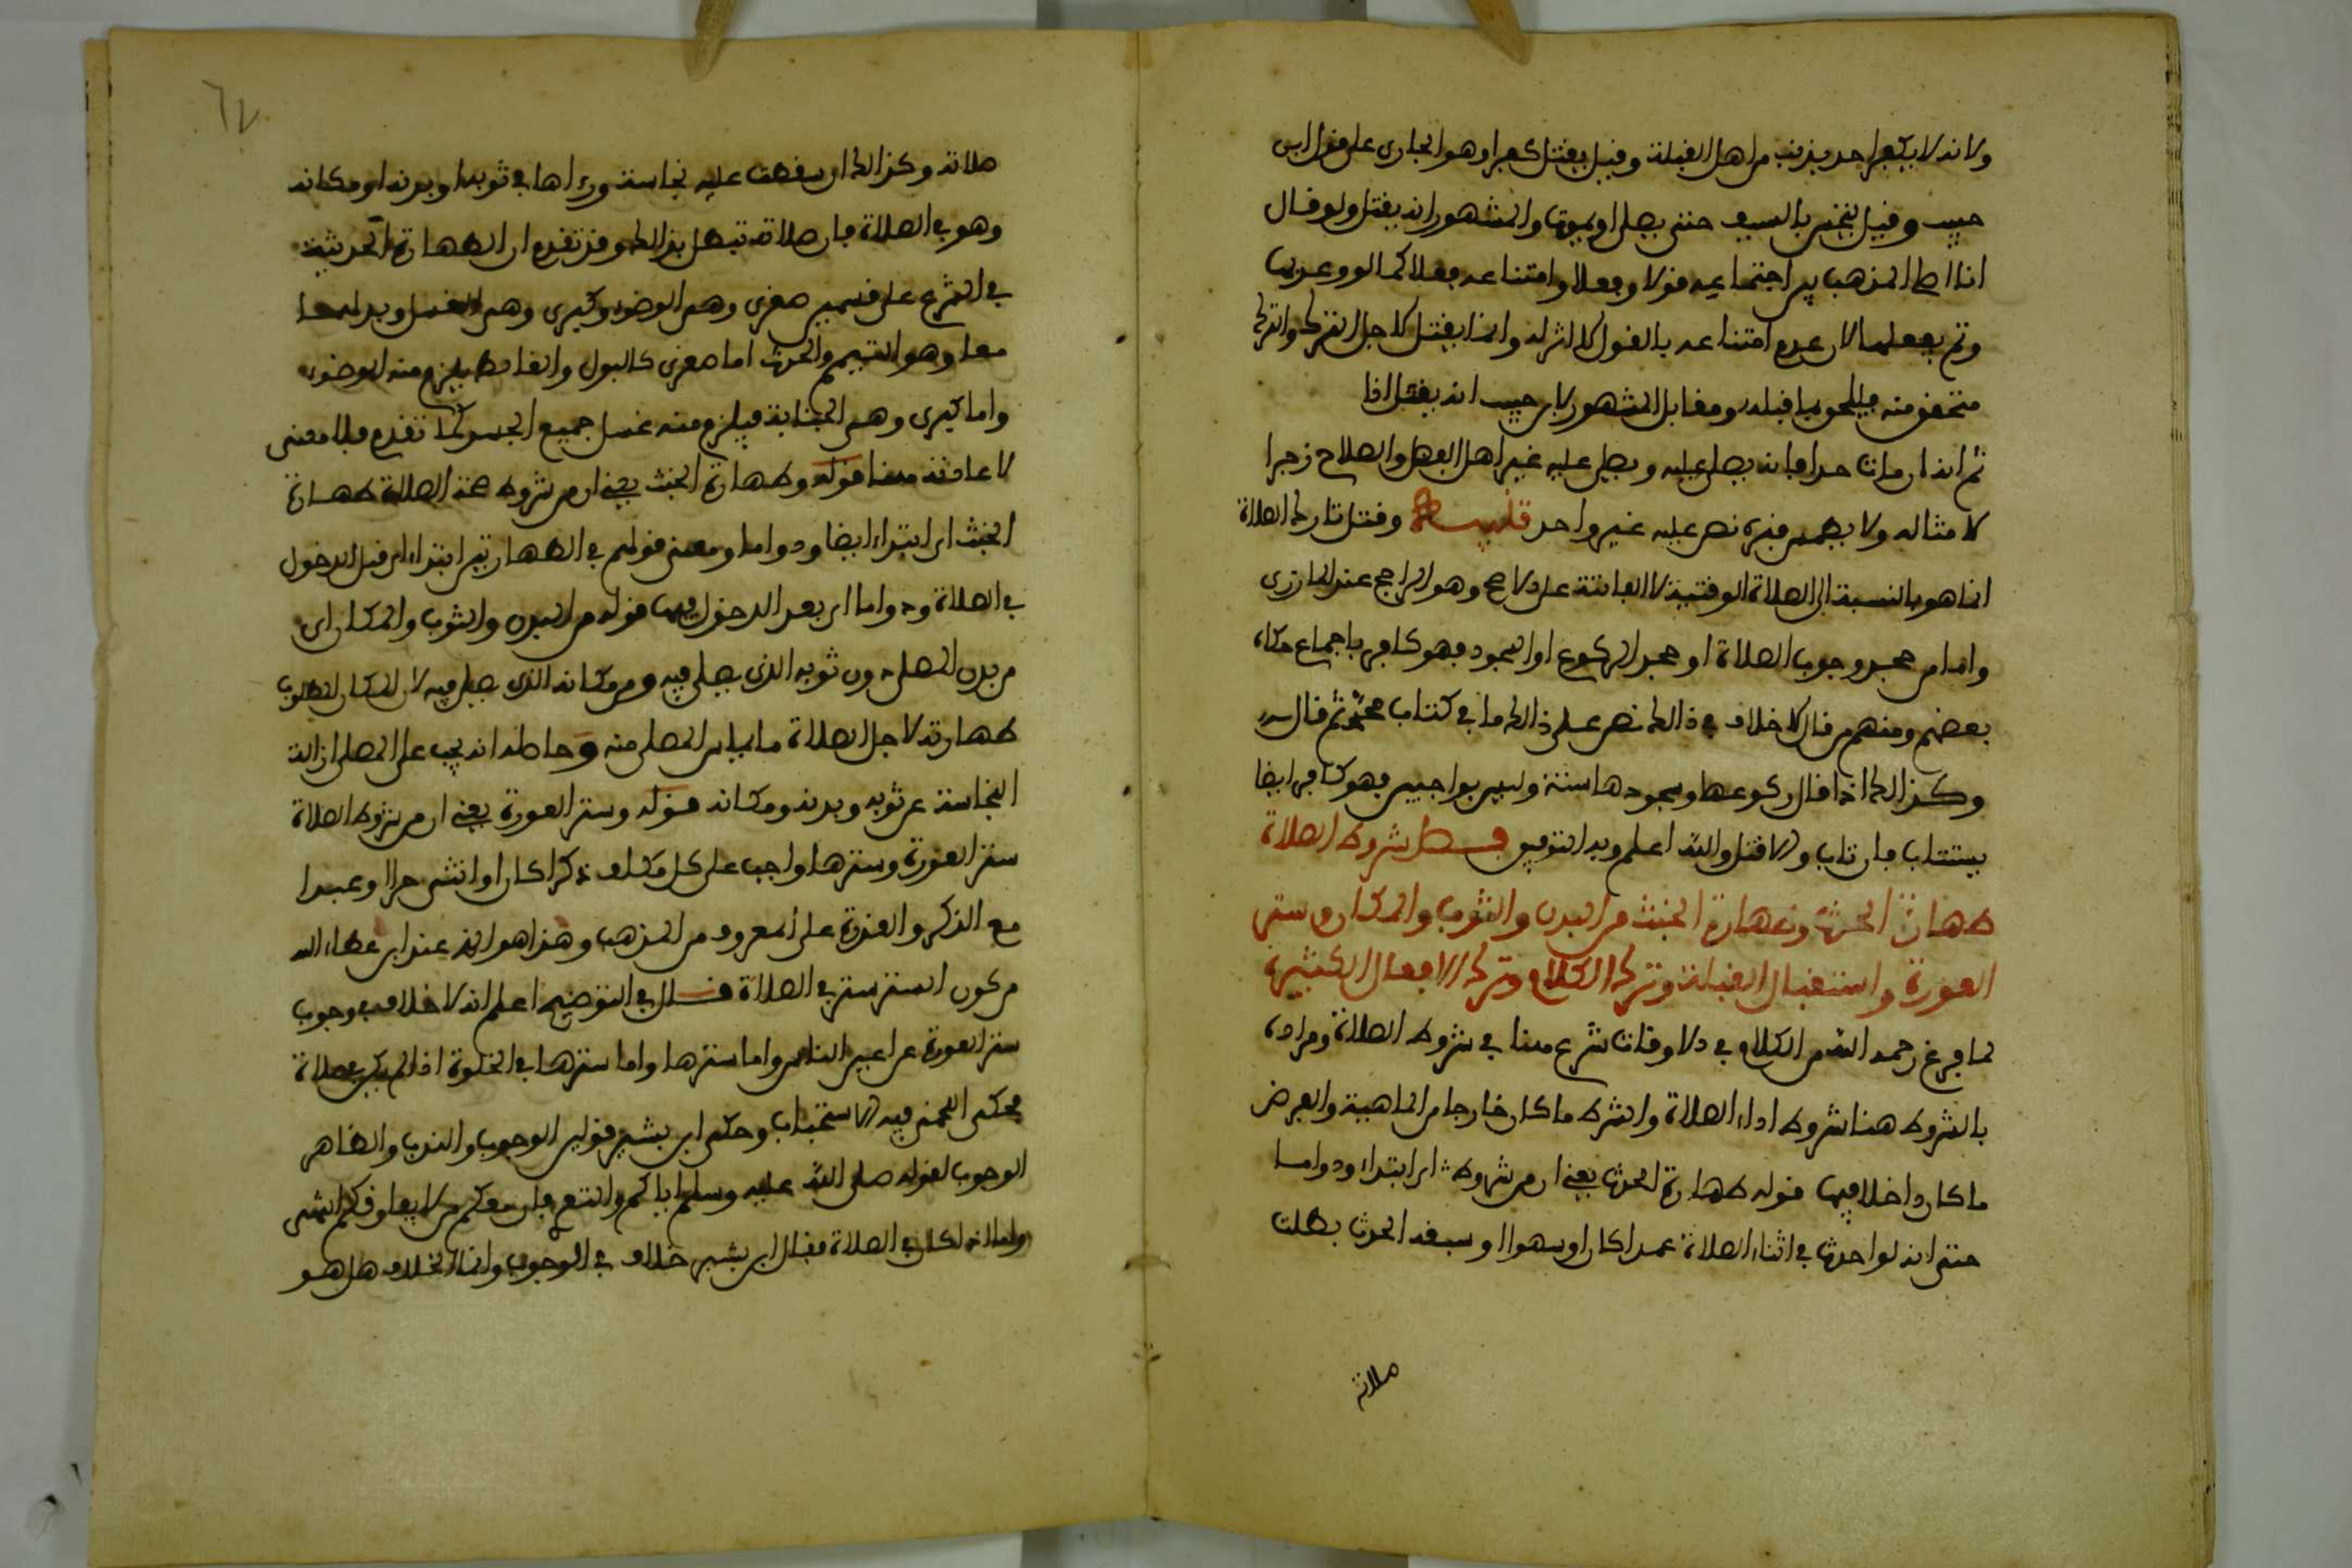 ولانه لا يكفر احد بذنب من اهل القبلة وقيل يقتل كفرا وهو الجاري على قول ابن
حبيب وقيل ينخس بالسيف حتى يصلي او يموت والمشهور انه يقتل ولو قال
انا اصلي المذهب اجتماعه قولا وفعلا وامتناعه فعلا كما لو وعد بها
ولم يفعلها لان عدم امتناعه بالقول لا اثر له وانما يقتل لاجل الترك والترك
متحقق منه فيلحق بما قبله ومقابل المشهور لابن حبيب انه يقتل اذا
ثم انه ان مات حدا فانه يصلى عليه ويصلي عليه غير اهل الفضل والصلاح زجرا
لامثاله ولا يطمس قبره نص عليه غير واحد تنبيه وقتل تارك الصلاة
انما هو بالنسبة الى الصلاة الوقتية لا الفائتة على الاصح وهو الراجح عند المازري
واما من جحد وجوب الصلاة او جحد الركوع او السجود فهو كافر باجماع حكاه
بعضهم ومنهم من قال لا خلاف في ذالك نص على ذالك ما في كتاب محمد ثم قال
وكذالك اذا قال ركوعها وسجودها سنة وليس بواجبين فهو كافر ايضا
يستتاب فان تاب والا قتل والله اعلم وبه التوفيق فصل شروط الصلاة
طهارة الحدث وطهارة الخبث من البدن والثوب والمكان وستر
العورة واستقبال القبلة وترك الكلام وترك الافعال الكثيرة
لما فرغ رحمه الله من الكلام في الاوقات شرع هنا في شروط الصلاة ومراده
بالشروط هنا شروط اداء الصلاة والشرط ما كان خارجا من الماهية والفرض
ما كان داخلا فيها قوله طهارة الحدث يعني ان من شروطه اي ابتداء ودواما
حتى انه لو احدث في اثناء الصلاة عمدا كان او سهوا او سبقه الحدث بطلت
صلاته
٦٧
صلاته وكذالك ان سقطت عليه نجاسة وراها في ثوبه او بدنه او مكانه
وهو في الصلاة فان صلاته تبطل بذالك وقد تقدم ان الطهارة الحدثية
في الشرع على قسمين صغرى وهي الوضوء وكبرى وهي الغسل وبدلهما
معا وهو التيمم والحدث اما صغرى كالبول والغائط فيلزم منه الوضوء
واما كبرى وهي الجنابة فيلزم منه غسل جميع الجسد كما تقدم فلا معنى
لاعادته هنا قوله وطهارة الخبث يعني ان من شروط صحة الصلاة طهارة
الخبث اي ابتداء ايضا ودواما ومعنى قولهم في الطهارتين ابتداء اي قبل الدخول
في الصلاة ودواما اي بعد الدخول فيها قوله من البدن والثوب والمكان اي
من بدن المصلي ومن ثوبه الذي يصلي فيه ومن مكانه الذي يصلي فيه لان المكان المطلوب
طهارته لاجل الصلاة ما يماس المصلي منه وحاصله انه يجب على المصلي ازالة
النجاسة عن ثوبه وبدنه ومكانه قوله وستر العورة يعني ان من شروط الصلاة
ستر العورة وسترها واجب على كل مكلف ذكرا كان او انثى حرا او عبدا
مع الذكر والقدرة على المعروف من المذهب وهذا هو الذي عند ابن عطاء الله
من كون الستر ستر في الصلاة قال في التوضيح اعلم انه لا خلاف في وجوب
ستر العورة عن اعين الناس واما سترها واما سترها في الخلوة اذا لم يكن في صلاة
فحكى اللخمي فيه الاستحباب وحكى ابن بشير قولين الوجوب والندب والظاهر
الوجوب لقوله صلى الله عليه وسلم اياكم والتعري فان معكم من لا يفارقكم انتهى
واما اذا كان في الصلاة فقال ابن بشير خلاف في الوجوب وانما الخلاف هل هو